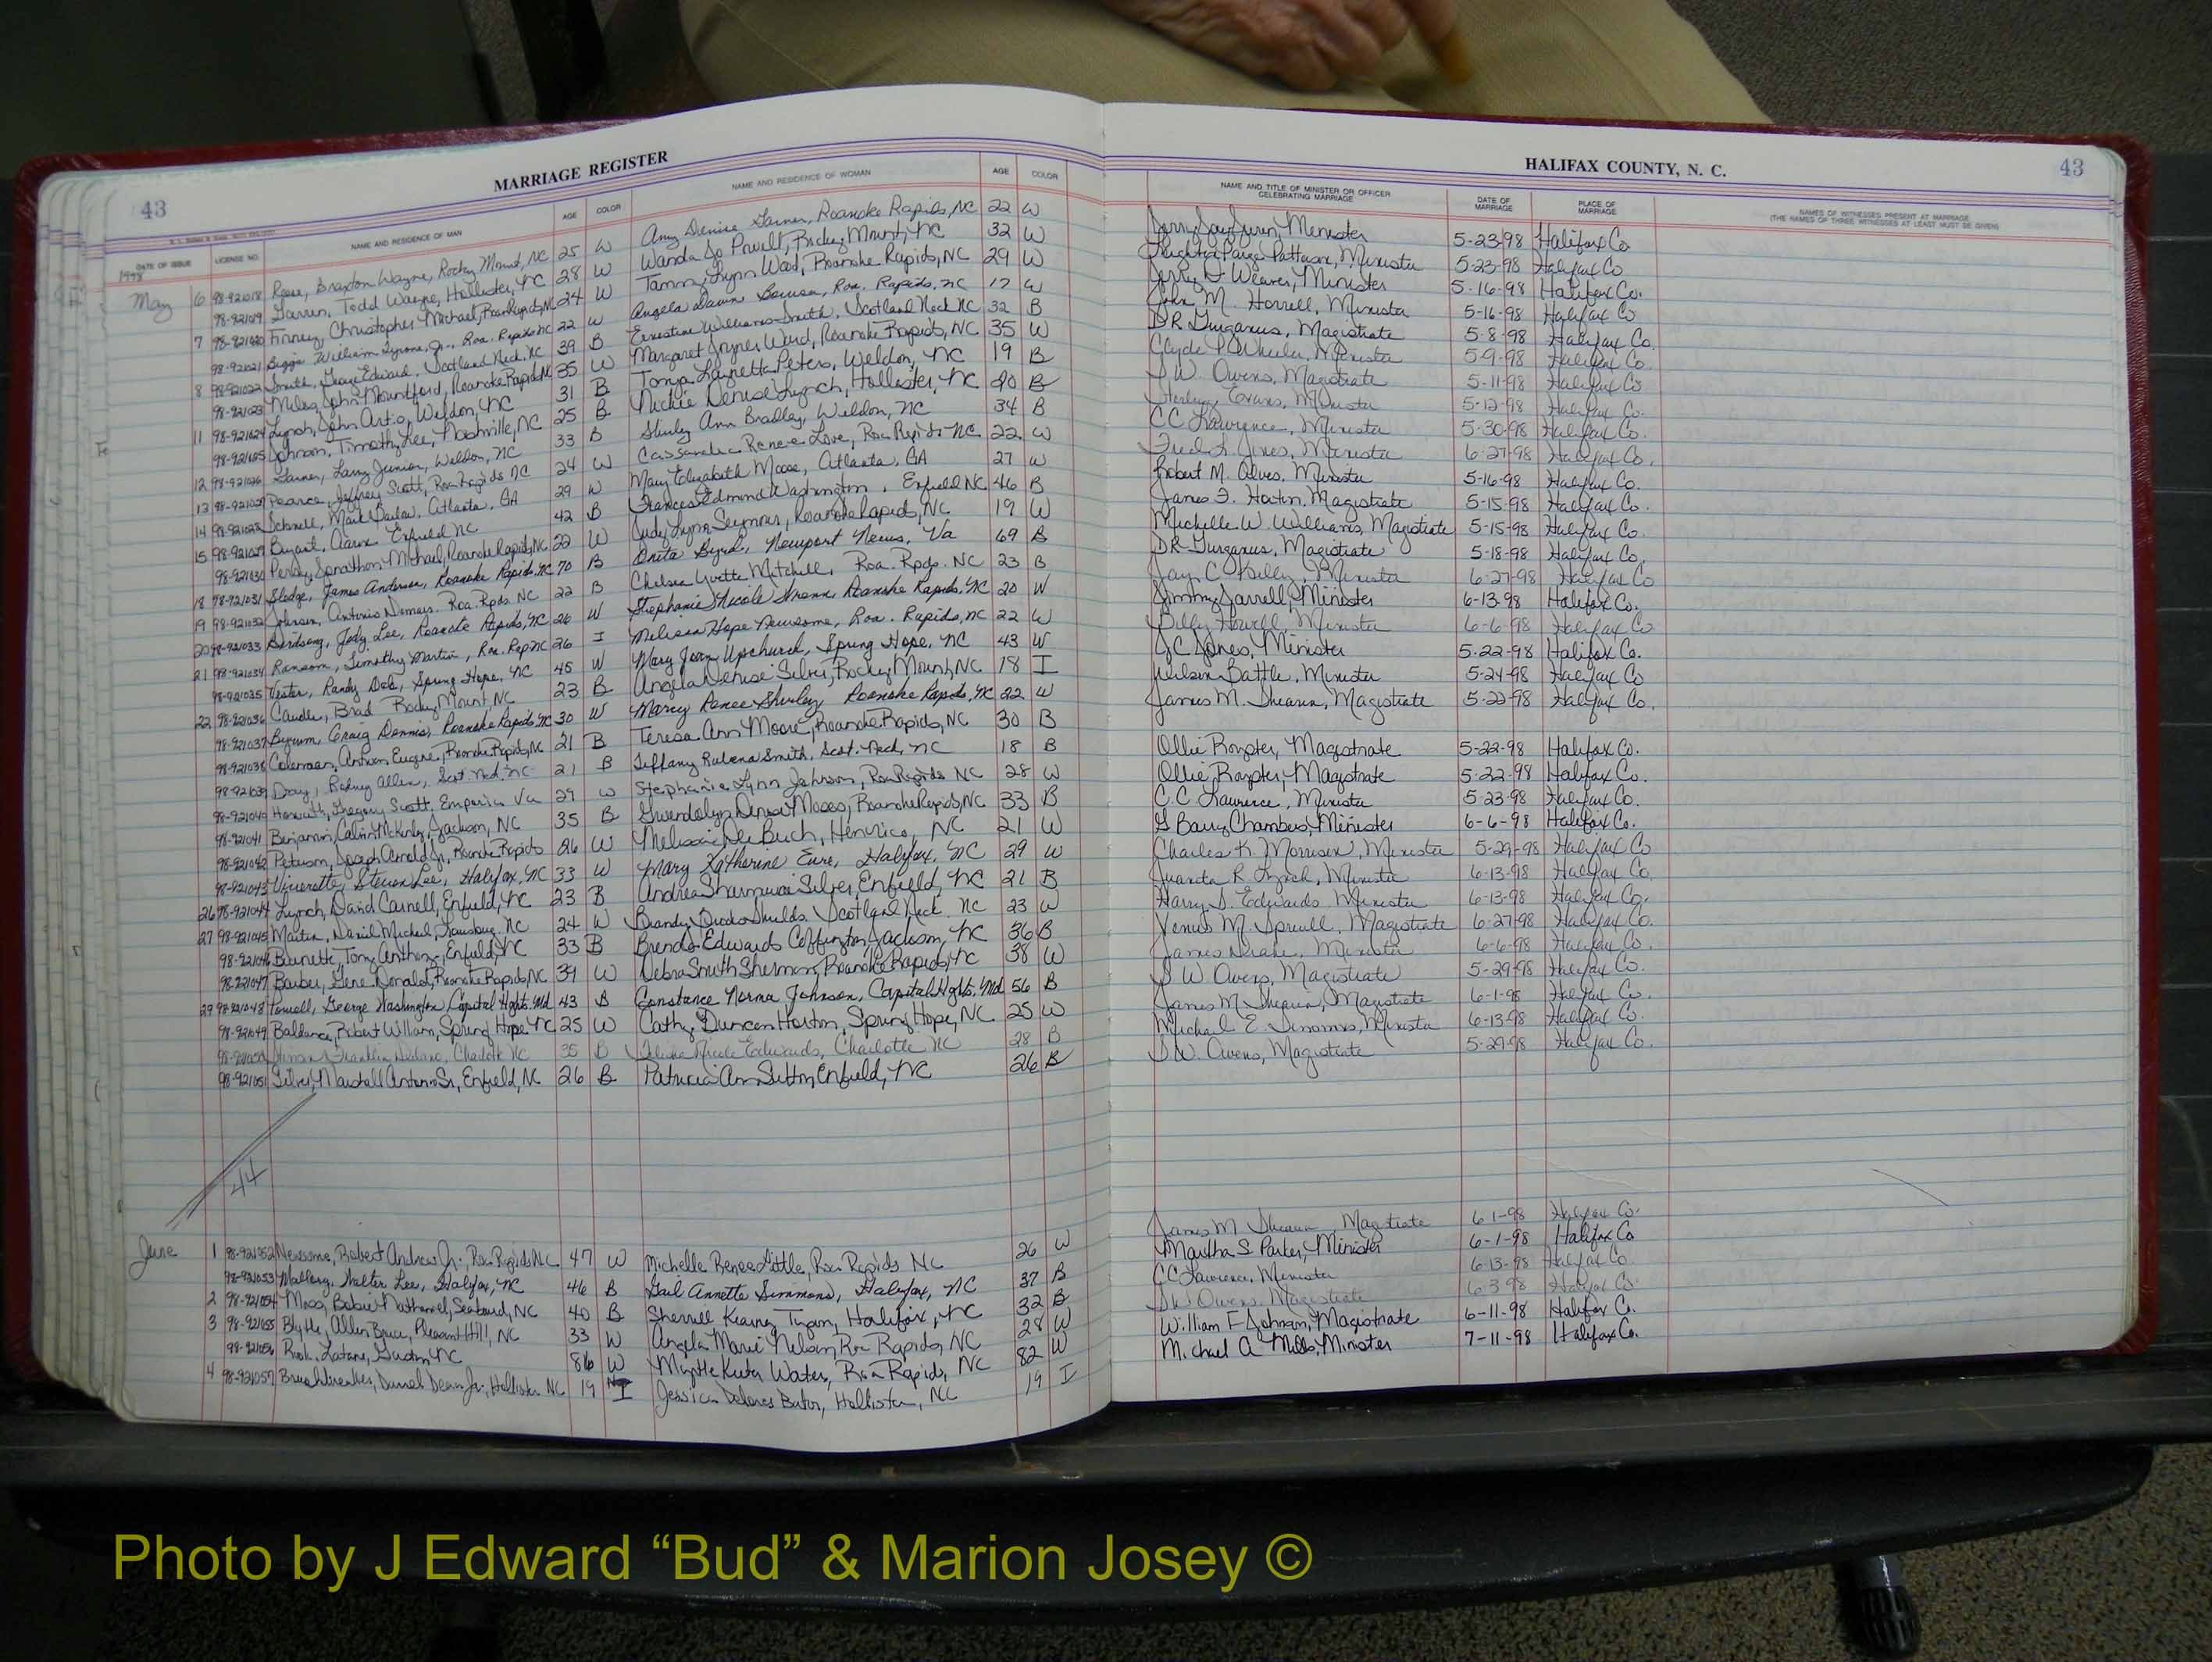 43
MARRIAGE REGISTER
HALIFAX COUNTY, N. C.
43
DATE OF ISSUE LICENSE NO. NAME AND RESIDENCE OF MAN AGE COLOR NAME AND RESIDENCE OF WOMAN AGE COLOR
NAME AND TITLE OF MINISTER OR OFFICER CELEBRATING MARRIAGE DATE OF MARRIAGE PLACE OF MARRIAGE NAMES OF WITNESSES PRESENT AT MARRIAGE (THE NAMES OF THREE WITNESSES AT LEAST MUST BE GIVEN)
1998
May 6 98-921018 Braxton Wayne, Rocky Mount, NC 25 W Amy Denise Garner, Roanoke Rapids, NC 22 W
98-921019 Todd Wayne, Hollister, NC 28 W Wanda Jo Powell, Rocky Mount, NC 32 W
7 98-921020 Finney, Christopher Michael, Roan Rapids, NC 24 W Tammy Lynn Wood, Roanoke Rapids, NC 29 W
98-921021 Biggs William Tyrone, Jr., Roa. Rapids NC 22 W Angela Dawn Roa. Rapids, NC 17 W
8 98-921022 Smith, Edward, Scotland Neck NC 39 B Ernestine Williams-Smith, Scotland Neck NC 32 B
98-921023 Miles, John Mountford, Roanoke Rapids, NC 35 W Margaret Joyner Ward, Roanoke Rapids, NC 35 W
11 98-921024 Lynch, John Weldon, NC 31 B Tonya Peters, Weldon, NC 19 B
98-921025 Johnson, Timothy Lee, Nashville, NC 25 B Nickie Denise Lynch, Hollister, NC 20 B
12 98-921026 Garner, Larry Junior, Weldon, NC 33 B Shirley Ann Bradley, Weldon, NC 34 B
13 98-921027 Pearce, Jeffrey Scott, Roa Rapids NC 24 W Cassandra Renee Love, Roa Rapids NC 22 W
14 98-921028 Mark Atlanta, GA 29 W Mary Elizabeth Moose, Atlanta, GA 27 W
15 98-921029 Bryant, Aaron Enfield NC 42 B Frances Edmond Washington, Enfield NC 46 B
98-921030 Perdy, Jonathon Michael, Roanoke Rapids, NC 22 W Judy Lynn Seymour, Roanoke Rapids, NC 19 W
18 98-921031 Sledge, James Anderson, Roanoke Rapids, NC 70 B Byrd, Newport News, Va 69 B
19 98-921032 Johnson, Antonio Roa. Rpds. NC 22 B Chelsea Yvette Mitchell, Roa. Rpds. NC 23 B
20 98-921033 Birdsong, Jody Lee, Roanoke Rapids, NC 26 W Stephanie Nicole Roanoke Rapids, NC 20 W
21 98-921034 Ransom, Timothy Martin, Roa. Rap NC 26 I Melissa Hope Newsome, Roa. Rapids, NC 22 W
98-921035 Vester, Randy Dale, Spring Hope, NC 45 W Mary Jean Upchurch, Spring Hope, NC 43 W
22 98-921036 Caudle, Brad Rocky Mount, NC 23 B Angela Denise Silver, Rocky Mount, NC 18 I
98-921037 Byrum, Craig Dennis, Roanoke Rapids, NC 30 W Marcy Renee Shirley Roanoke Rapids, NC 22 W
98-921038 Coleman, Eugene, Roanoke Rapids, NC 21 B Teresa Ann Moore, Roanoke Rapids, NC 30 B
98-921039 Day, Rodney Allen, Scot Neck, NC 21 B Tiffany Smith, Scot. Neck, NC 18 B
98-921040 Gregory Scott, Emporia Va 29 W Stephanie Lynn Johnson, Roa Rapids NC 28 W
98-921041 Benjamin, Calvin McKinley, Jackson, NC 35 B Gwendolyn Denise Moses, Roanoke Rapids, NC 33 B
98-921042 Peterson, Joseph Arnold Jr., Roanoke Rapids 26 W Melissa De Buch, Henrico, NC 21 W
98-921043 Viverette, Steven Lee, Halifax, NC 33 W Mary Katherine Eure, Halifax, NC 29 W
26 98-921044 Lynch, David Carnell, Enfield, NC 23 B Andrea Silver, Enfield, NC 21 B
27 98-921045 Martin, Daniel Michael, NC 24 W Brandy Shields Scotland Neck NC 23 W
98-921046 Burnette, Tony Anthony, Enfield, NC 33 B Brenda Edwards Coffington, Jackson, NC 36 B
98-921047 Barber, Gene Donald, Roanoke Rapids, NC 39 W Debra Smith Sherman, Roanoke Rapids, NC 38 W
29 98-921048 Powell, George Washington, Capital Hghts, Md 43 B Constance Norma Johnson, Capital Hghts, Md 56 B
98-921049 Robert William, Spring Hope NC 25 W Cathy Duncan Horton, Spring Hope, NC 25 W
98-921050 Franklin Charlotte NC 35 B Nicole Edwards, Charlotte NC 28 B
98-921051 Silver, Marshall Antonio Sr., Enfield, NC 26 B Patricia Ann Sutton, Enfield, NC 26 B
44
June 1 98-921052 Newsome, Robert Andrew Jr. Roa Rapids NC 47 W Michelle Renee Little, Roa Rapids NC 26 W
98-921053 Mallory, Walter Lee, Halifax, NC 46 B Gail Annette Simmons, Halifax, NC 37 B
2 98-921054 Moss, Nathaniel, Seaboard, NC 40 B Sherrill Kearney Halifax, NC 32 B
3 98-921055 Blythe, Allen Bruce, Pleasant Hill, NC 33 W Angela Marie Nelson, Roa Rapids, NC 28 W
98-921056 Rook, Gaston NC 86 W Myrtle Water, Roa Rapids, NC 82 W
4 98-921057 Daniel Dean Jr., Hollister NC 19 I Jessica Delores Hollister, NC 19 I
Jerry Minister 5-23-98 Halifax Co.
Paige Patterson, Minister 5-23-98 Halifax Co
Jerry D Weaver, Minister 5-16-98 Halifax Co.
John M. Harrell, Minister 5-16-98 Halifax Co
DR Gurganus, Magistrate 5-8-98 Halifax Co.
Clyde P Wheeler, Minister 5-9-98 Halifax Co.
S W. Owens, Magistrate 5-11-98 Halifax Co
Sterling Evans, Minister 5-12-98 Halifax Co.
CC Lawrence, Minister 5-30-98 Halifax Co.
Fred L. Jones, Minister 6-27-98 Halifax Co.
Robert M. Alves, Minister 5-16-98 Halifax Co.
James F. Magistrate 5-15-98 Halifax Co.
Michelle W. Williams, Magistrate 5-15-98 Halifax Co.
DR Gurganus, Magistrate 5-18-98 Halifax Co.
Jay C Minister 6-27-98 Halifax Co
Jimmy Jarrell, Minister 6-13-98 Halifax Co.
Billy Howell, Minister 6-6-98 Halifax Co
JC Jones, Minister 5-22-98 Halifax Co.
Wilson Battle, Minister 5-24-98 Halifax Co
James M. Shearin, Magistrate 5-22-98 Halifax Co.
Ollie Royster, Magistrate 5-22-98 Halifax Co.
Ollie Royster, Magistrate 5-22-98 Halifax Co.
C.C Lawrence, Minister 5-23-98 Halifax Co.
G Barry Chambers, Minister 6-6-98 Halifax Co.
Charles K. Morrison, Minister 5-29-98 Halifax Co
Juanita R Lynch, Minister 6-13-98 Halifax Co.
Harry S. Edwards, Minister 6-13-98 Halifax Co.
Venus M. Spruill, Magistrate 6-27-98 Halifax Co.
James Minister 6-6-98 Halifax Co.
S W Owens, Magistrate 5-29-98 Halifax Co.
James M Shearin, Magistrate 6-1-98 Halifax Co.
Michael E Simmons, Minister 6-13-98 Halifax Co.
S W. Owens, Magistrate 5-29-98 Halifax Co.
James M Shearin, Magistrate 6-1-98 Halifax Co.
Martha S Parker, Minister 6-1-98 Halifax Co
CC Lawrence, Minister 6-13-98 Halifax Co
S W Owens, Magistrate 6-3-98 Halifax Co.
William F Johnson, Magistrate 6-11-98 Halifax Co.
Michael A Mills, Minister 7-11-98 Halifax Co.
Photo by J Edward “Bud” & Marion Josey ©